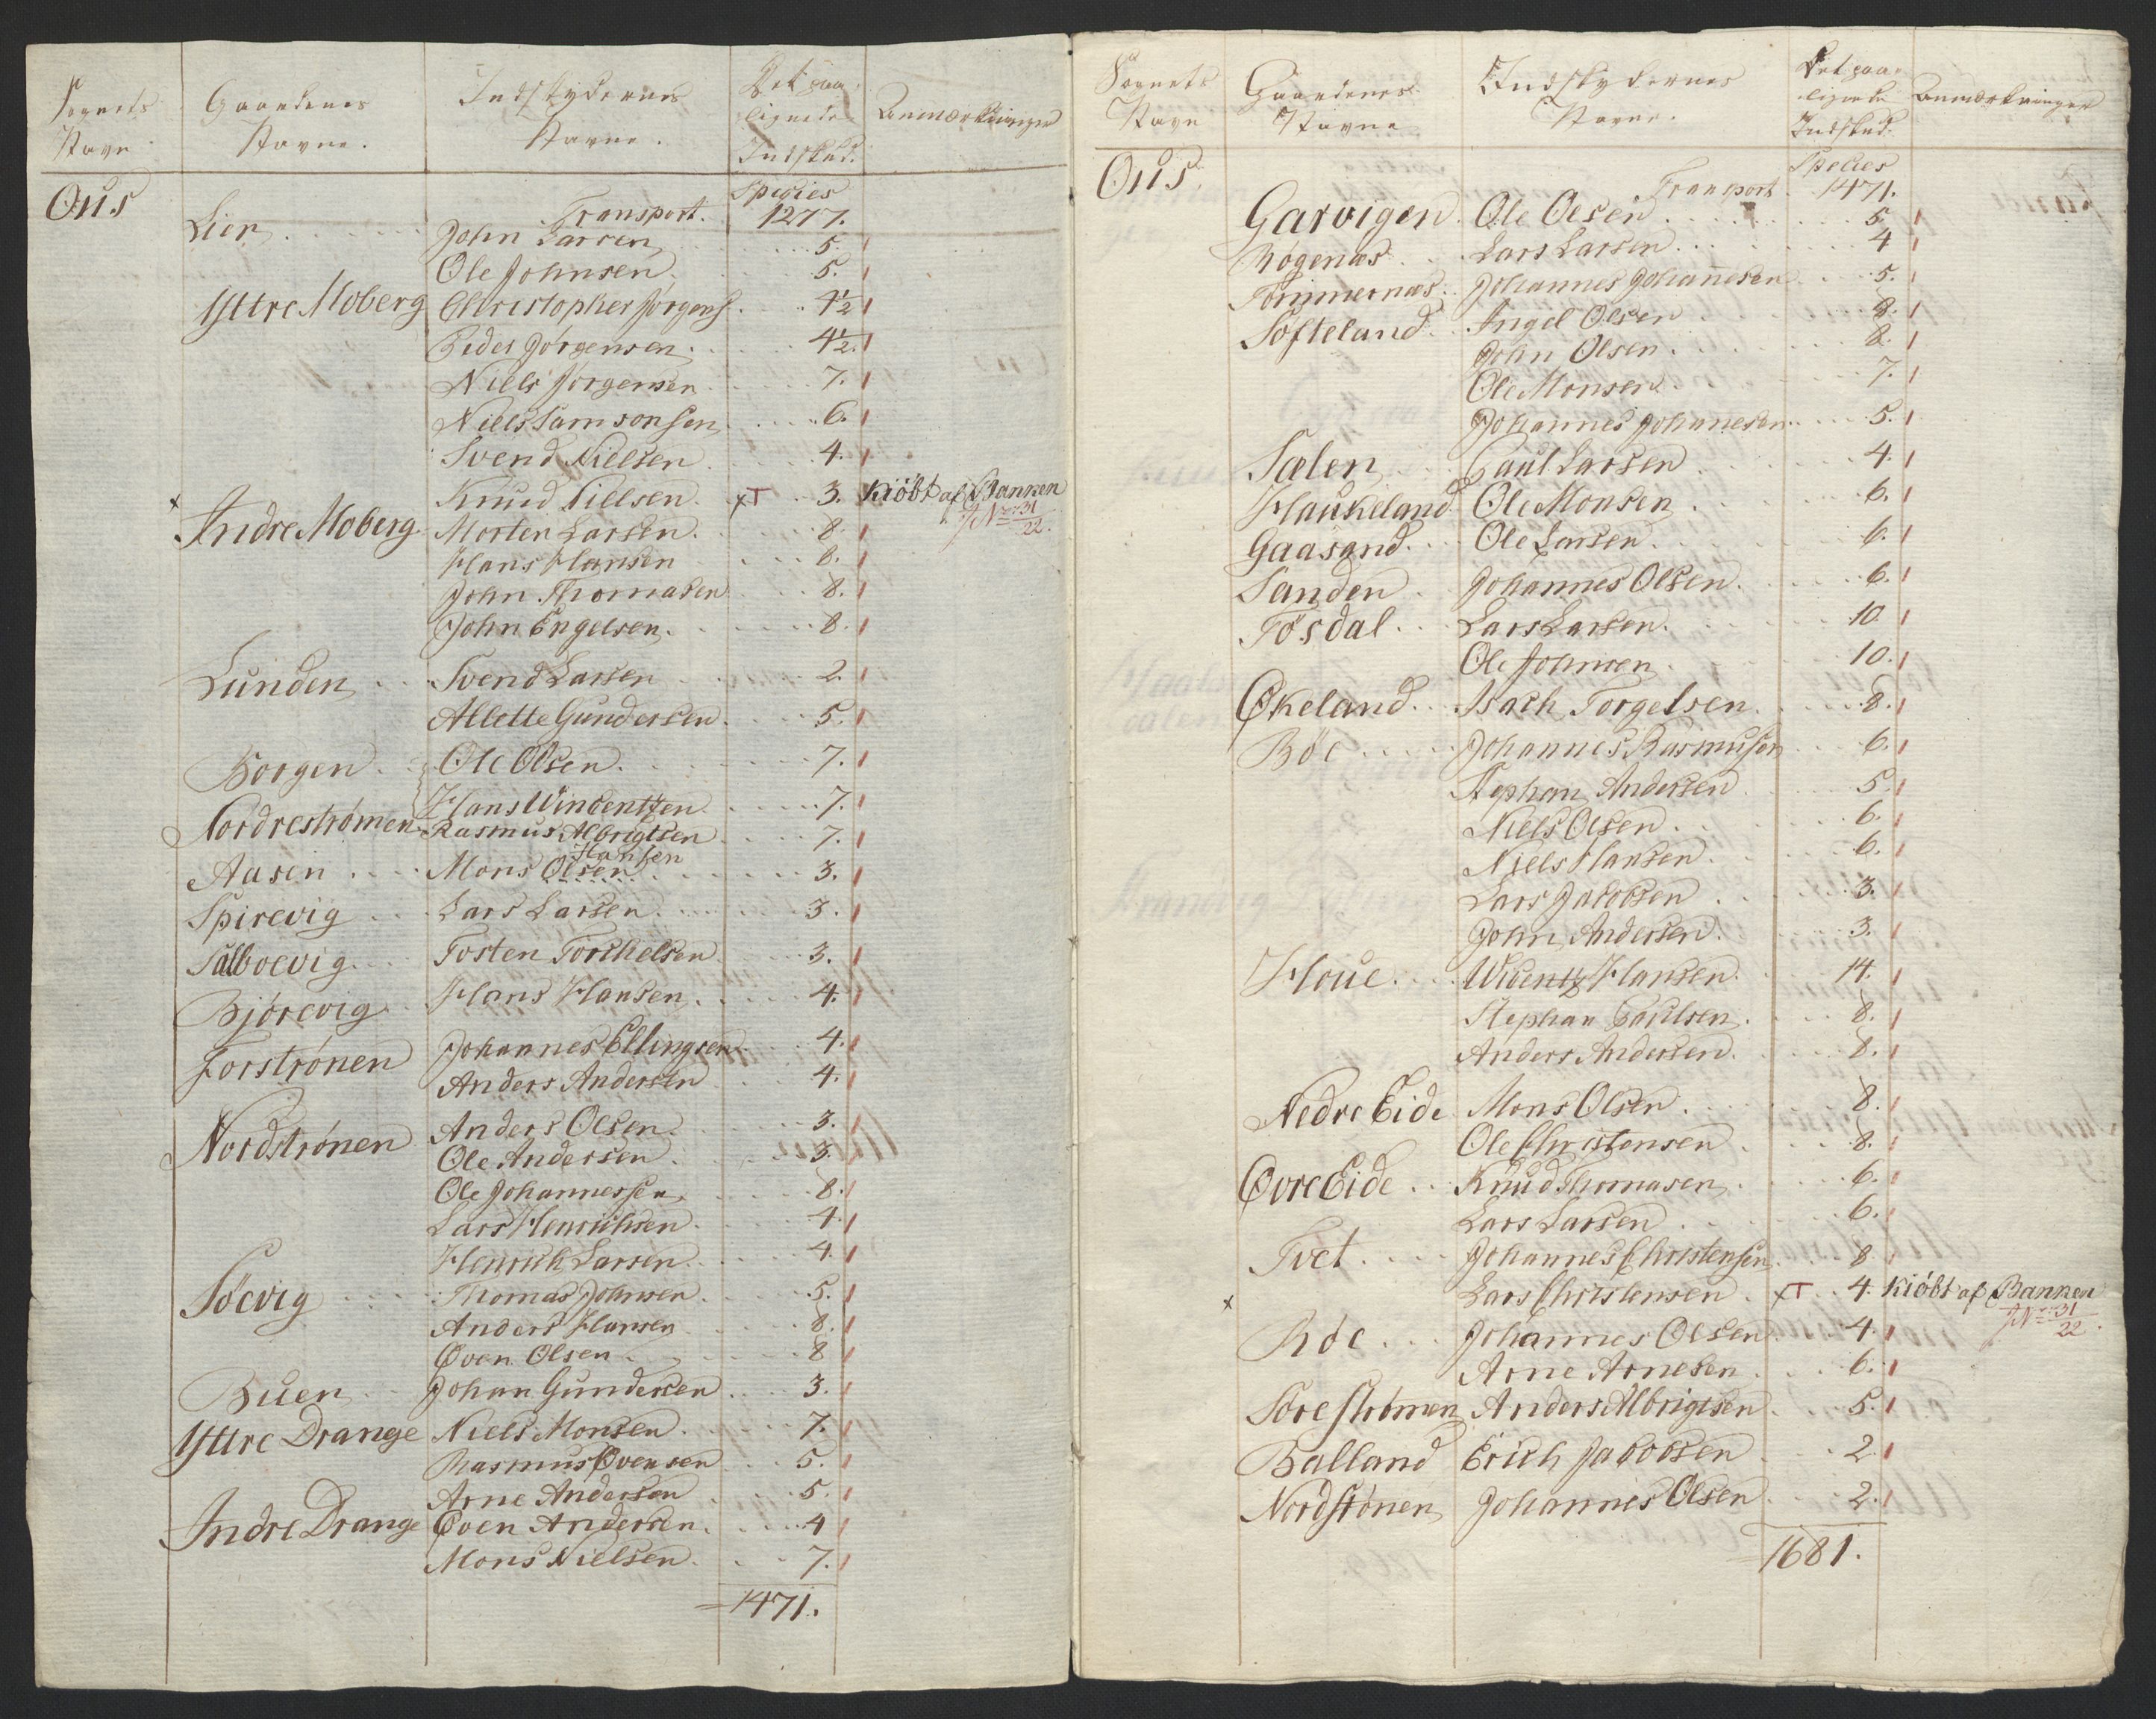 Sognets Gaardenes Indskydernes Det paa-
Navn Navne. Navne. lignede Anmærkninger
Indskud.
Ous Transport. Species 1277.
Lien John Larsen 5.
Ole Johnsen 5.
Yttre Moberg Christopher Jørgens 4½
Peder Jørgensen 4½.
Niels Jørgensen 7.
Niels Samsonsen 6.
Svend Nielsen 4.
x Knud Nielsen xT 3. Kiøbt af Banken
Indre Moberg Morten Larsen. 8. No 31/22.
Hans Hansen 8.
John Thomasen 8.
John Engelsen. 8.
Lunden Svend Larsen 2.
Allette Gundersen 5.
Borgen Ole Olsen. 7.
Hans Wincentzen 7.
Nordrestrømen Rasmus Albrigtsen 7.
Hansen
Aasen Mons Olsen 3.
Spirevig Lars Larsen 3.
Salboevig Tosten Torchelsen 3.
Bjørevig Hans Hansen 4.
Forstrønen Johannes Ellingsen 4.
Anders Andersen 4.
Nordstrønen Anders Olsen. 3.
Ole Andersen 3.
Ole Johannessen 8.
Lars Henrichsen 4.
Henrich Larsen 4.
Søevig Thomas Johnsen 5.
Anders Hansen 8.
Øven Olsen 8
Buen Johan Gundersen 3.
Yttre Drange Niels Monsen 7.
Rasmus Øvensen 5.
Arne Andersen 5.
Indre Drange Øven Andersen. 4
Mons Nielsen 7.
1471.
Sognets Gaardenes Indskydernes Det paa-
Navn Navne Navne. lignede Anmærkninger
Indskud.
Ous Transport Species 1471.
Garvigen Ole Olsen 5
Røgenæs Lars Larsen 4
Tømmernæs Johannes Johannesen 5.
Søfteland Ingel Olsen 8.
John Olsen 8.
Ole Monsen 7.
Johannes Johannesen 5.
Sælen Paul Larsen 4.
Haukeland Ole Monsen 6.
Gaasand Ole Larsen 6.
Sanden Johannes Olsen. 6.
Tøsdal Lars Larsen. 10.
Ole Johnsen 10.
Økeland Isach Torgelsen 8.
Bøe Johannes Rasmusen 6.
Stephan Andersen 5.
Niels Olsen 6.
Niels Hansen 6.
Lars Jacobsen 3.
John Andersen 3.
Houe Wicentz Hansen 14.
Stephan Paulsen 8.
Anders Andersen. 8.
Nedre Eide Mons Olsen 8.
Ole Christensen 8.
Øvre Eide Knud Thomasen 6.
Lars Larsen 6.
Tvet Johannes Christensen 8
x Lars Christensen xT 4. Kiøbt af Banken
Røe Johannes Olsen 4. No 31/22.
Arne Arnesen 6.
Søre strømen Anders Albrigtsen 5.
Balland Erich Jacobsen 2.
Nordstrønen Johannes Olsen 2.
1681.